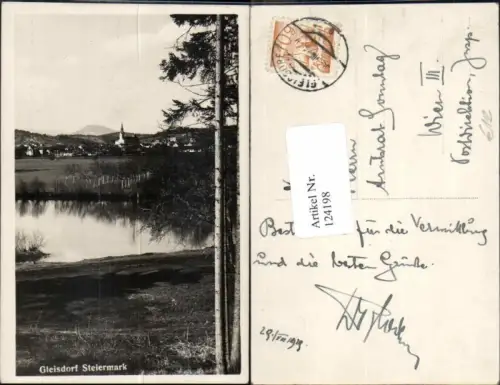 Gleisdorf Steiermark
GLEISDORF
Artikel Nr.
124198
Herrn
Amtsrat Sonntag
Wien III.
Postdirektion,
612
Best für die Vermittlung
und die besten Grüße.